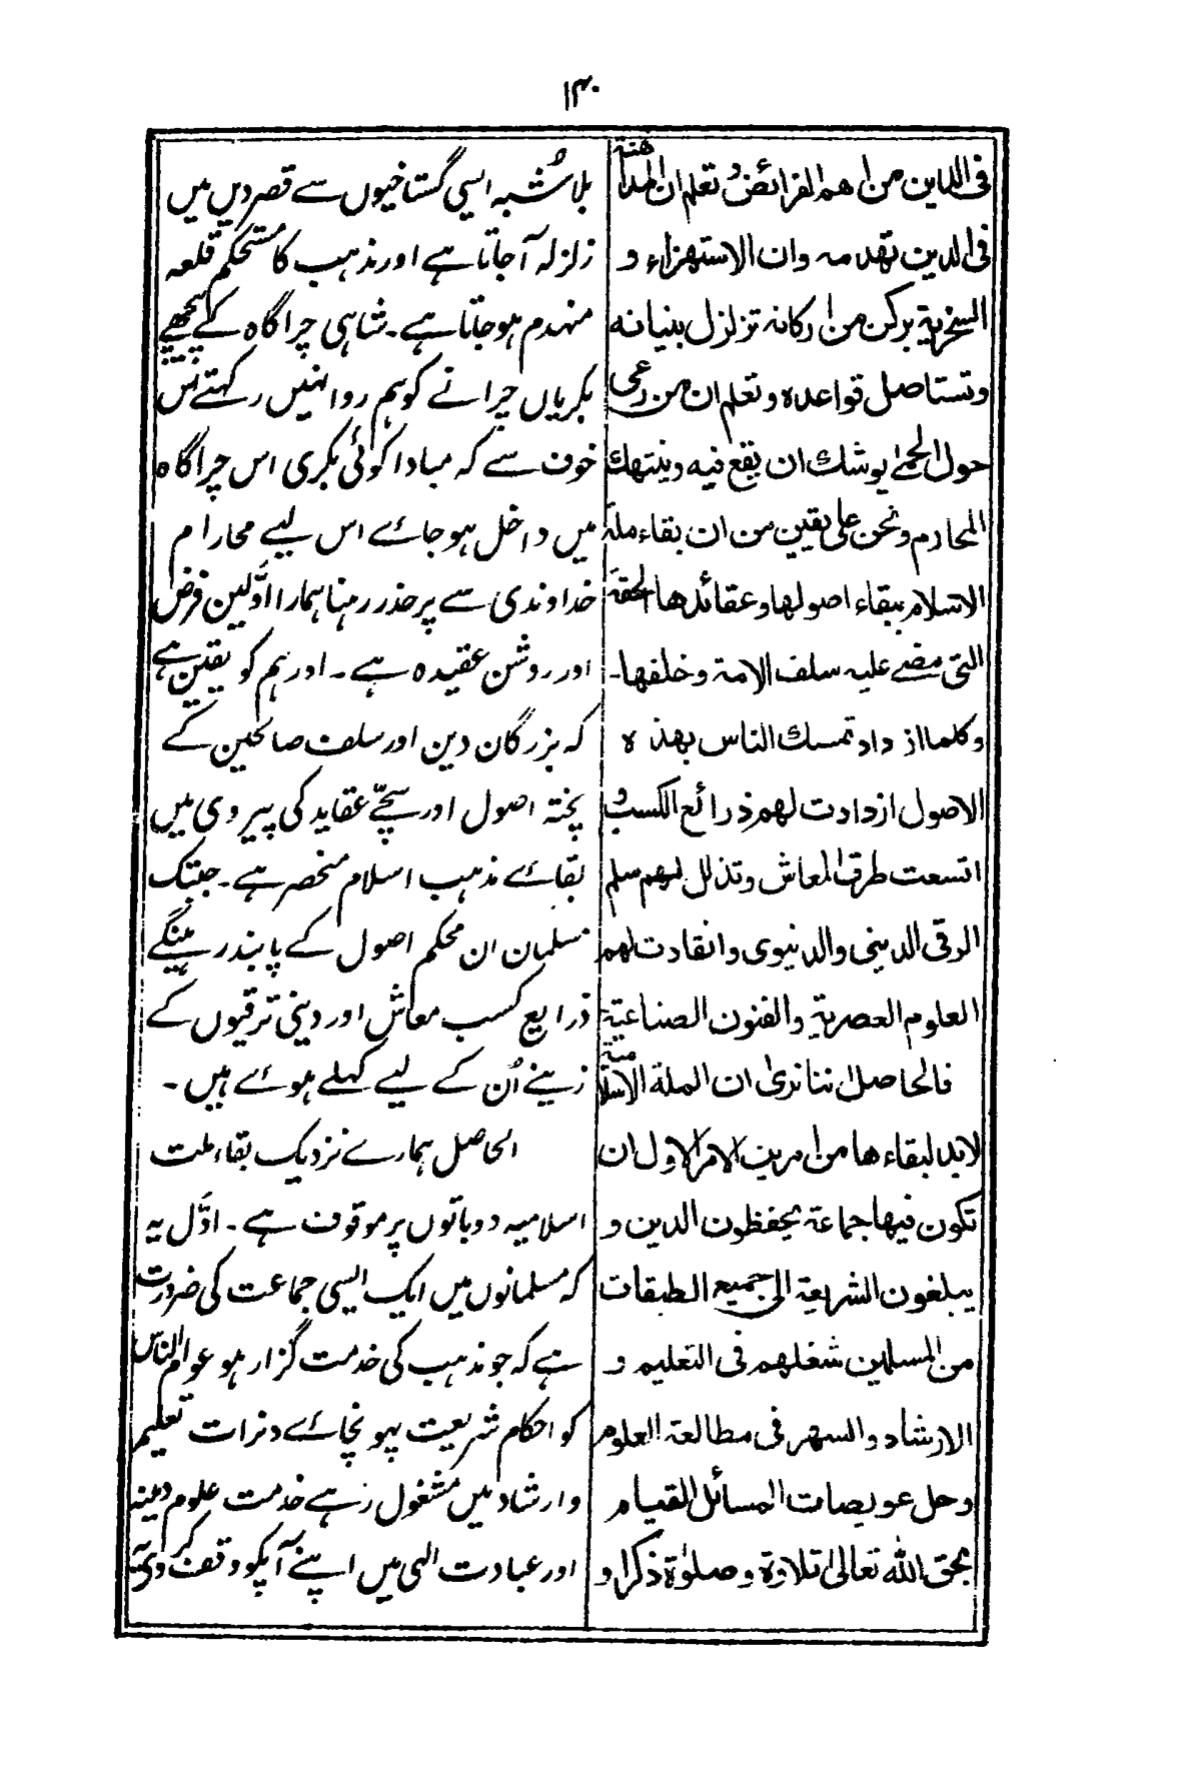 ۱۴۰
فی الدین من اهم الفرائض و تعلم ان المداهنة
فی الدین تهدمه وان الاستهزاء و
السخریة برکن من ارکانه تزلزل بنیانه
وتستاصل قواعده وتعلم ان من رعی
حول الحمیٰ یوشك ان یقع فیه وینتهك
المحارم ونحن علی یقین من ان بقاء ملة
الاسلام ببقاء اصولها وعقائدها الحقة
التی مضے علیه سلف الامة وخلفها۔
وکلما ازداد تمسك الناس بهذه
الاصول ازدادت لهم ذرائع الکسب و
اتسعت طرق المعاش وتذلل لهم سلم
الرقی الدینی والدنیوی وانقادت لهم
العلوم العصریة والفنون الصناعیة
فالحاصل اننا نریٰ ان الملة الاسلامیة
لابد لبقاءها من امرین الامر الاول ان
تکون فیها جماعة یحفظون الدین و
یبلغون الشریعة الی جمیع الطبقات
من المسلمین شغلهم فی التعلیم و
الارشاد والسهر فی مطالعة العلوم
وحل عویصات المسائل القیام
بحق الله تعالیٰ تلاوة وصلوٰة ذکرا و
بلا شُبہ ایسی گستاخیوں سے قصر دیں میں
زلزلہ آجاتا ہے اور مذہب کا مستحکم قلعہ
منہدم ہو جاتا ہے۔ شاہی چراگاہ کے پیچھے
بکریاں چرانے کو ہم روا نہیں رکہتے اس
خوف سے کہ مبادا کوئی بکری اس چراگاہ
میں داخل ہو جائے اس لیے محارام
خداوندی سے پر حذر رہنا ہمارا اوّلین فرض
اور روشن عقیدہ ہے۔ اور ہم کو یقین ہے
کہ بزرگان دین اور سلف صالحین کے
پختہ اصول اور سچّے عقاید کی پیروی میں
بقائے مذہب اسلام منحصر ہے۔ جبتک
مسلمان ان محکم اصول کے پابند رہینگے
ذرایع کسب معاش اور دینی ترقیوں کے
زینے اُن کے لیے کہلے ہوئے ہیں۔
الحاصل ہمارے نزدیک بقاء ملت
اسلامیہ دو باتوں پر موقوف ہے۔ اوّل یہ
کہ مسلمانوں میں ایک ایسی جماعت کی ضرورت
ہے کہ جو مذہب کی خدمت گزار ہو عوام الناس
کو احکام شریعت پہونچائے دنرات تعلیم
وارشاد میں مشغول رہے خدمت علوم دینیہ
اور عبادت الٰہی میں اپنے آپکو وقف کر دے